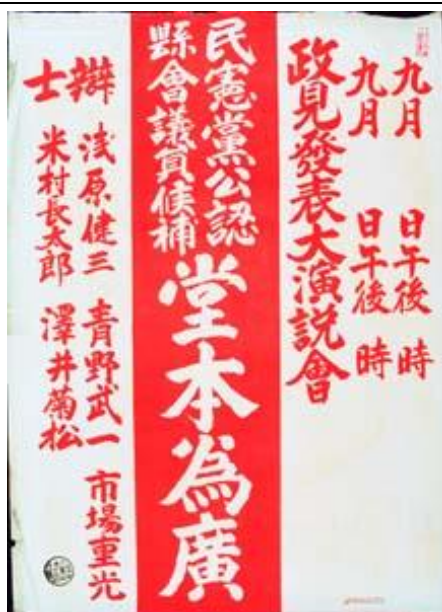 九月 日午後 時
九月 日午後 時
政見發表大演説會
民憲黨公認
縣會議員候補
堂本為廣
辯士
浅原健三
青野武一
市場重光
米村長太郎
澤井菊松